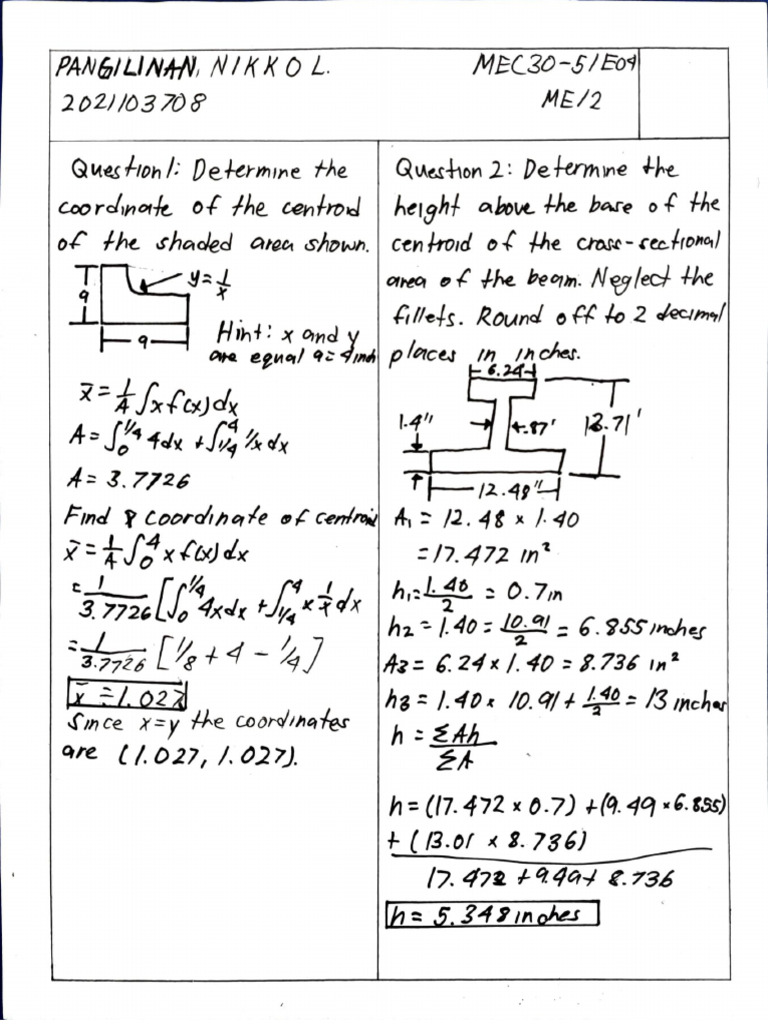 PANGILINAN, NIKKO L.
2021103708
MEC30-5/E04
ME/2
Question 1: Determine the
coordinate of the centroid
of the shaded area shown.
y=1/x
a
a
Hint: x and y
are equal a=4 inch
x̄=1/A∫xf(x)dx
A=∫₀^1/4 4dx+∫1/4^4 1/x dx
A=3.7726
Find x coordinate of centroid
x̄=1/A∫₀^4 xf(x)dx
=1/3.7726[∫₀^1/4 4xdx+∫1/4^4 x 1/x dx
=1/3.7726[1/8+4-1/4]
x̄=1.027
Since x=y the coordinates
are (1.027, 1.027).
Question 2: Determine the
height above the base of the
centroid of the cross-sectional
area of the beam. Neglect the
fillets. Round off to 2 decimal
places in inches.
6.24"
1.4"
.87'
13.71'
12.48"
A₁=12.48×1.40
=17.472 in²
h₁=1.40/2=0.7in
h2=1.40=10.91/2=6.855inches
A3=6.24×1.40=8.736 in²
h3=1.40×10.91+1.40/2=13 inches
h=ΣAh/ΣA
h=(17.472×0.7)+(9.49×6.855)
+(13.01×8.736)
17.472+9.49+8.736
h=5.348inches